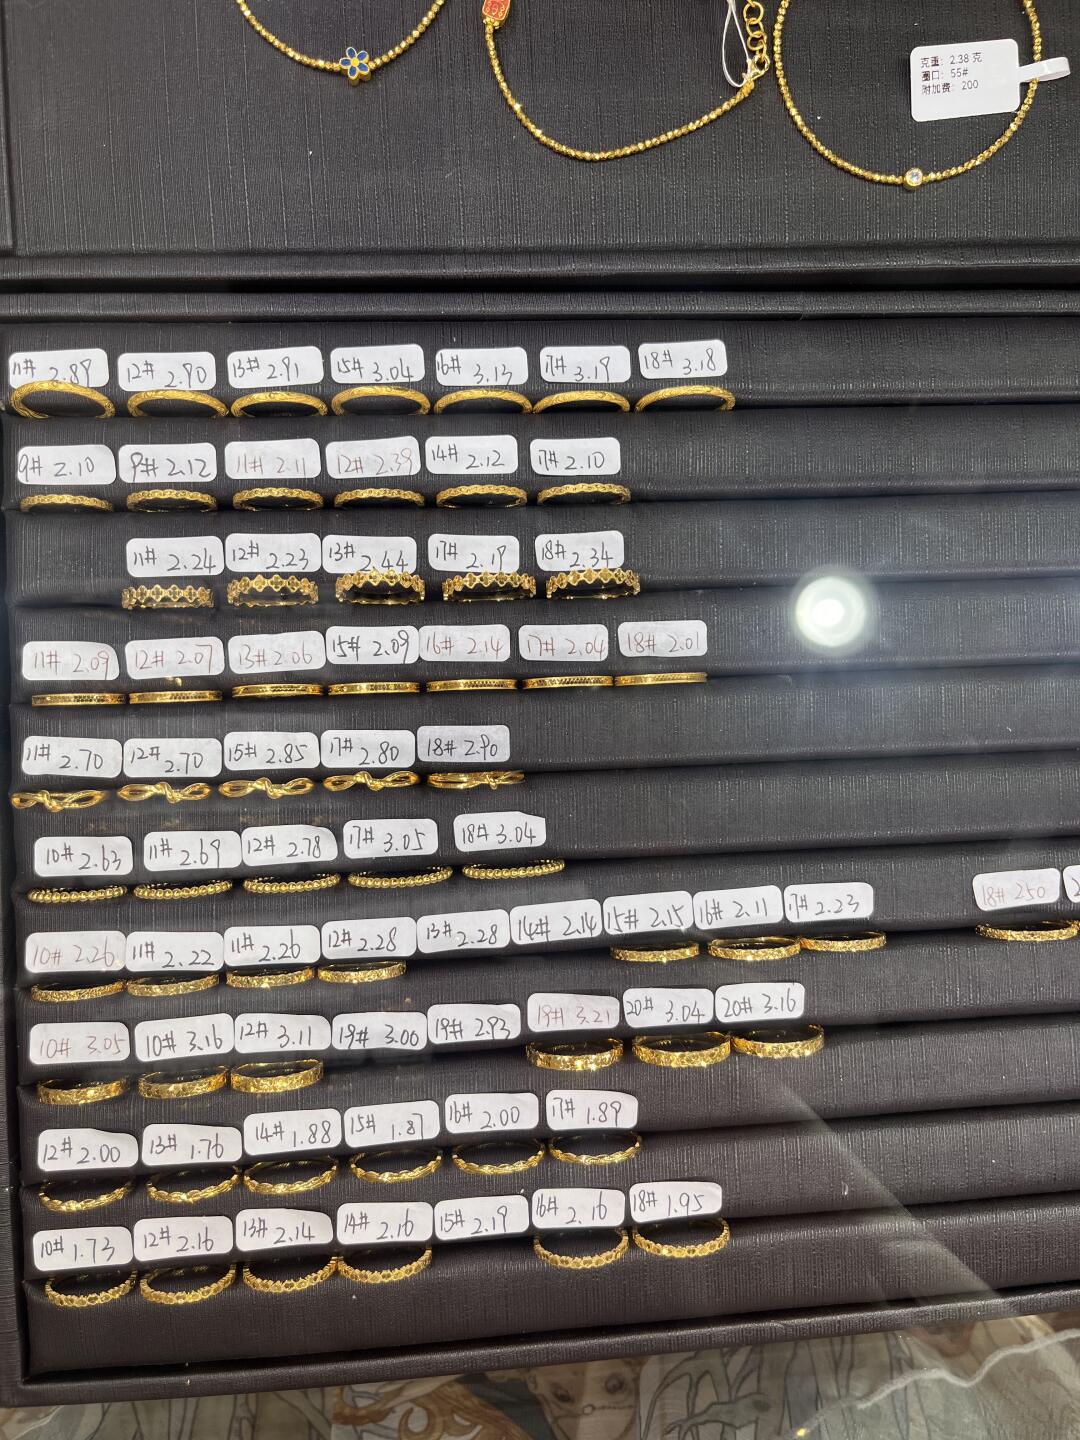 克重：2.38 克
圈口：55#
附加费：200
11# 2.89 12# 2.90 13# 2.91 15# 3.04 16# 3.13 17# 3.19 18# 3.18
9# 2.10 9# 2.12 11# 2.11 12# 2.39 14# 2.12 17# 2.10
11# 2.24 12# 2.23 13# 2.44 17# 2.19 18# 2.34
11# 2.09 12# 2.07 13# 2.06 15# 2.09 16# 2.14 17# 2.04 18# 2.01
11# 2.70 12# 2.70 15# 2.85 17# 2.80 18# 2.90
10# 2.63 11# 2.69 12# 2.78 17# 3.05 18# 3.04
10# 2.26 11# 2.22 11# 2.26 12# 2.28 13# 2.28 14# 2.14 15# 2.15 16# 2.11 17# 2.23 18# 2.50
10# 3.05 10# 3.16 12# 3.11 19# 3.00 19# 2.93 19# 3.21 20# 3.04 20# 3.16
12# 2.00 13# 1.76 14# 1.88 15# 1.87 16# 2.00 17# 1.89
10# 1.73 12# 2.16 13# 2.14 14# 2.16 15# 2.19 16# 2.16 18# 1.95